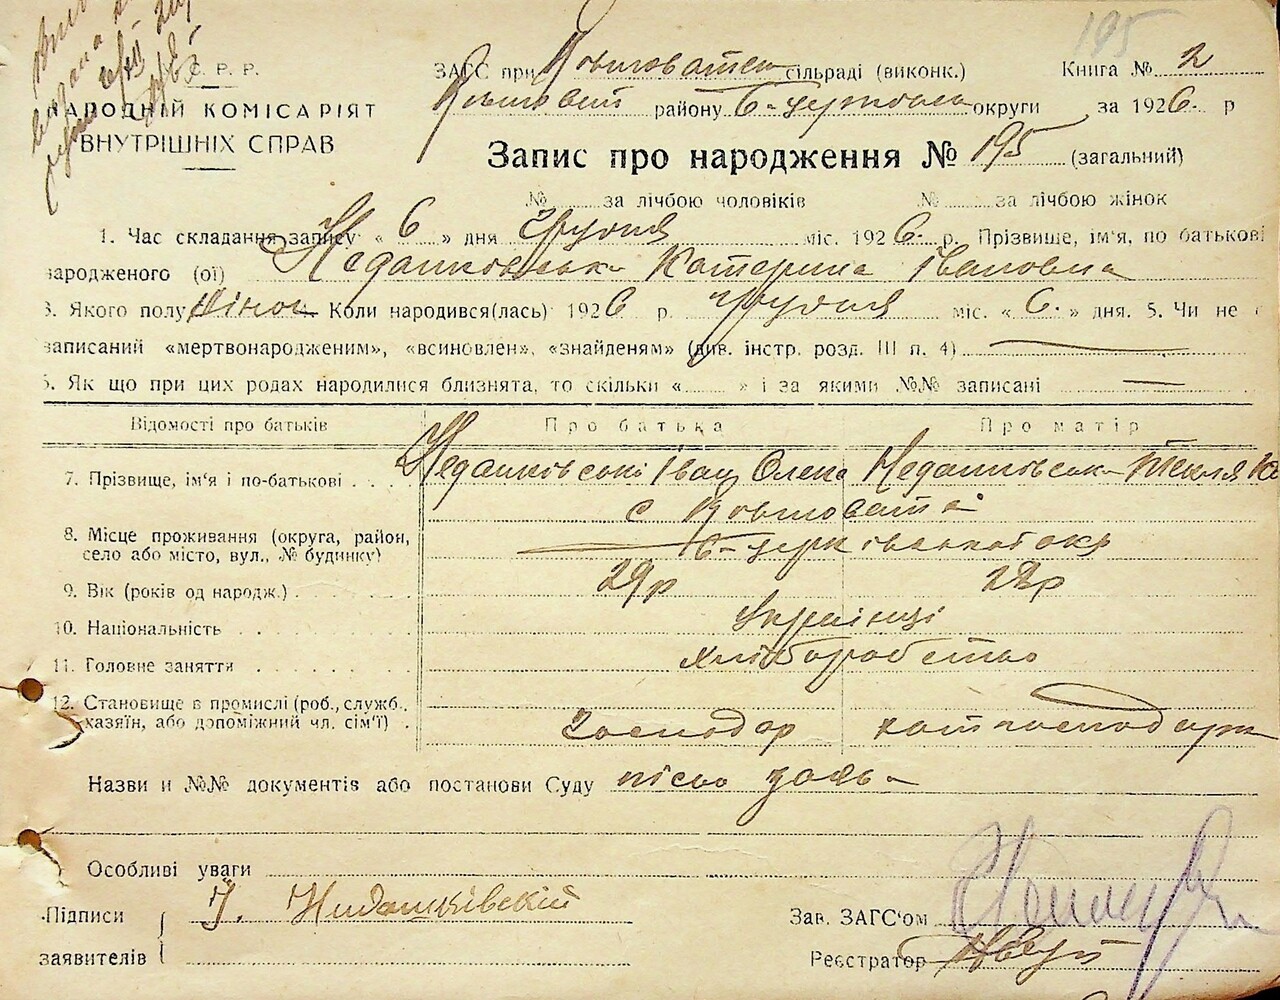 195
С. Р. Р.
НАРОДНІЙ КОМІСАРІЯТ
ВНУТРІШНІХ СПРАВ
ЗАГС при Ковшоватск сільраді (виконк.) Книга № 2
району Б-Церківськ округи за 1926 р
Запис про народження № 195 (загальний)
№ за лічбою чоловіків № за лічбою жінок
1. Час складання запису « 6 » дня Грудня міс. 1926 р. Прізвище, ім'я, по батькові
народженого (ої) Недашковська Катерина Івановна
3. Якого полу жіноч Коли народився(лась) 1926 р. Грудня міс. « 6. » дня. 5. Чи не є
записаний «мертвонародженим», «всиновлен», «знайденям» (див. інстр. розд. III п. 4)
6. Як що при цих родах народилися близнята, то скільки « » і за якими №№ записані
Відомості про батьків Про батька Про матір
7. Прізвище, ім'я і по-батькові Недашковські Іван Олекс Недашковська Текля
8. Місце проживання (округа, район, село або місто, вул., № будинку) с Ковшовата
Б-Церківської окр
9. Вік (років од народж.) 29р 28р
10. Національність Українці
11. Головне заняття хліборобство
12. Становище в промислі (роб., служб., хазяїн, або допоміжний чл. сім'ї) Господар
Назви и №№ документів або постанови Суду пісьм заява
Особливі уваги
Підписи І. Нидашківскій Зав. ЗАГС'ом
заявителів Реєстратор